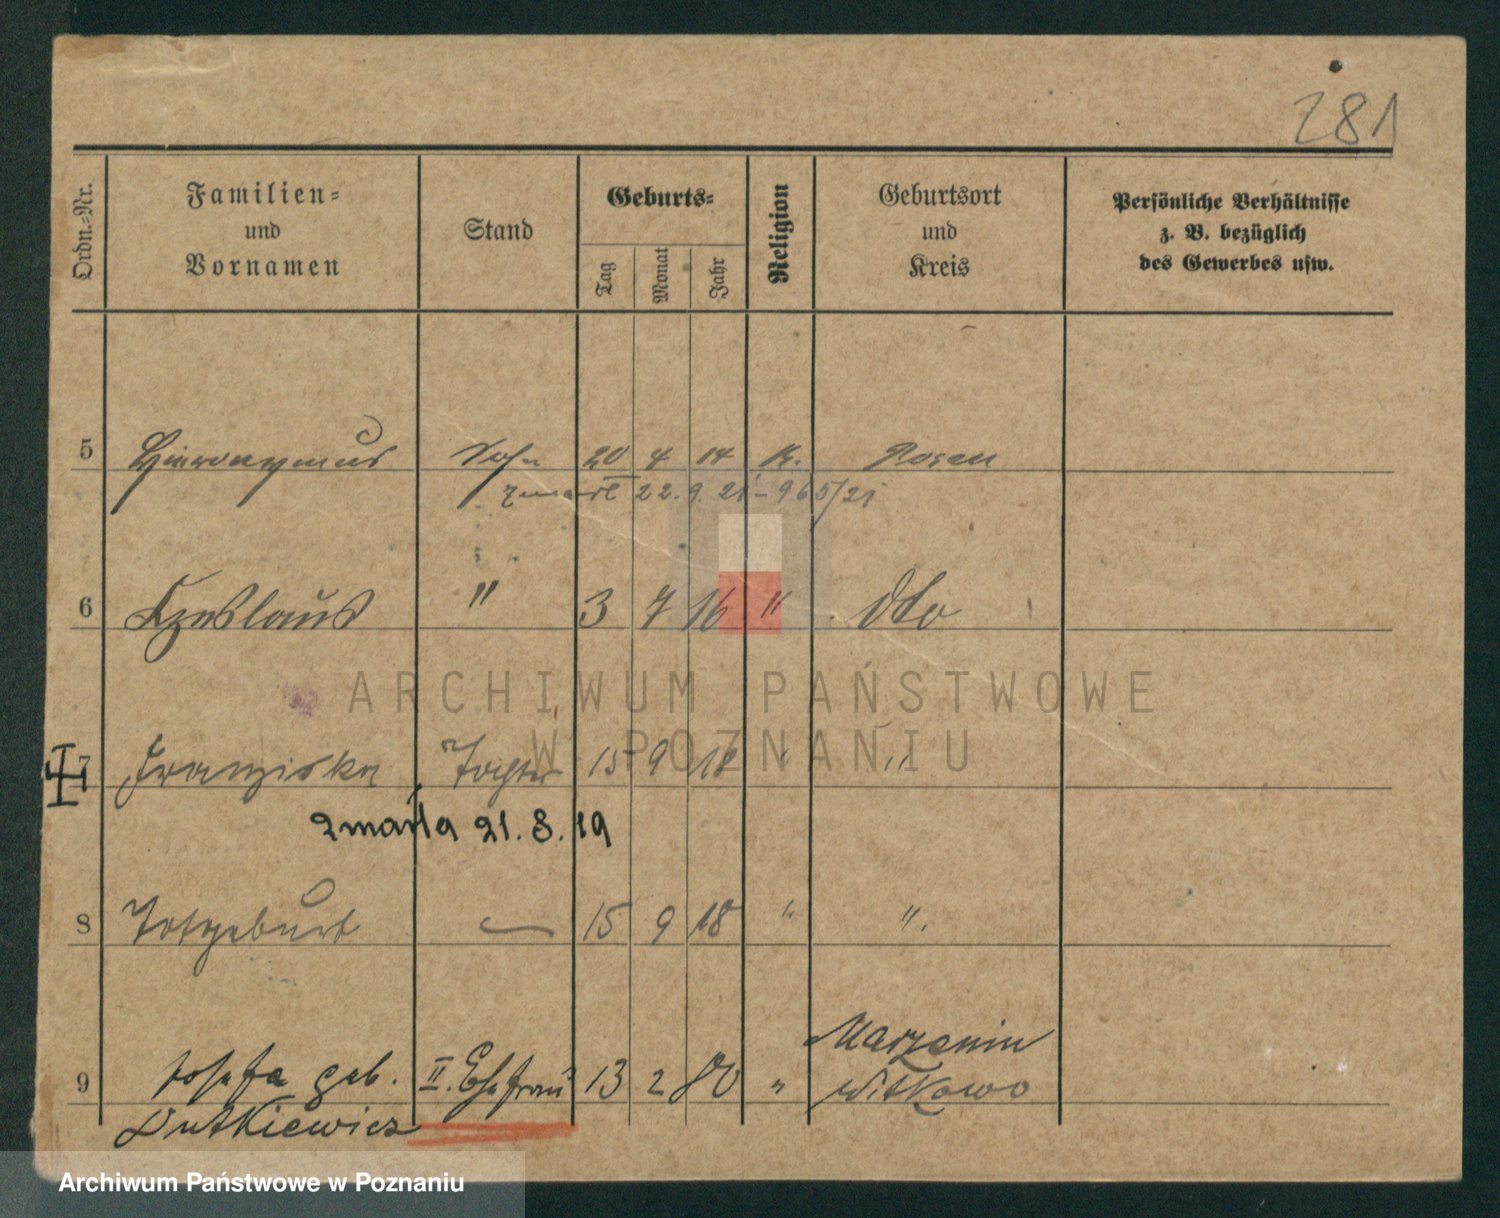 281
Ordn.-Nr.
Familien-
und
Vornamen
Stand
Geburts-
Tag
Monat
Jahr
Religion
Geburtsort
und
Kreis
Persönliche Verhältnisse
z. B. bezüglich
des Gewerbes usw.
5 Hieronymus Sohn 20 4 14 K. Posen
zmarł 22.9.21 - 965/21
6 Czeslaus " 3 7 16 " dto
ARCHIWUM PAŃSTWOWE
W POZNANIU
7 Franziska Tochter 15 9 18 " "
zmarła 21. 8. 19
8 Totgeburt — 15 9 18 " ".
Marzenin
9 Josefa geb. II. Ehefrau 13 2 80 " Witkowo
Dutkiewicz
Archiwum Państwowe w Poznaniu